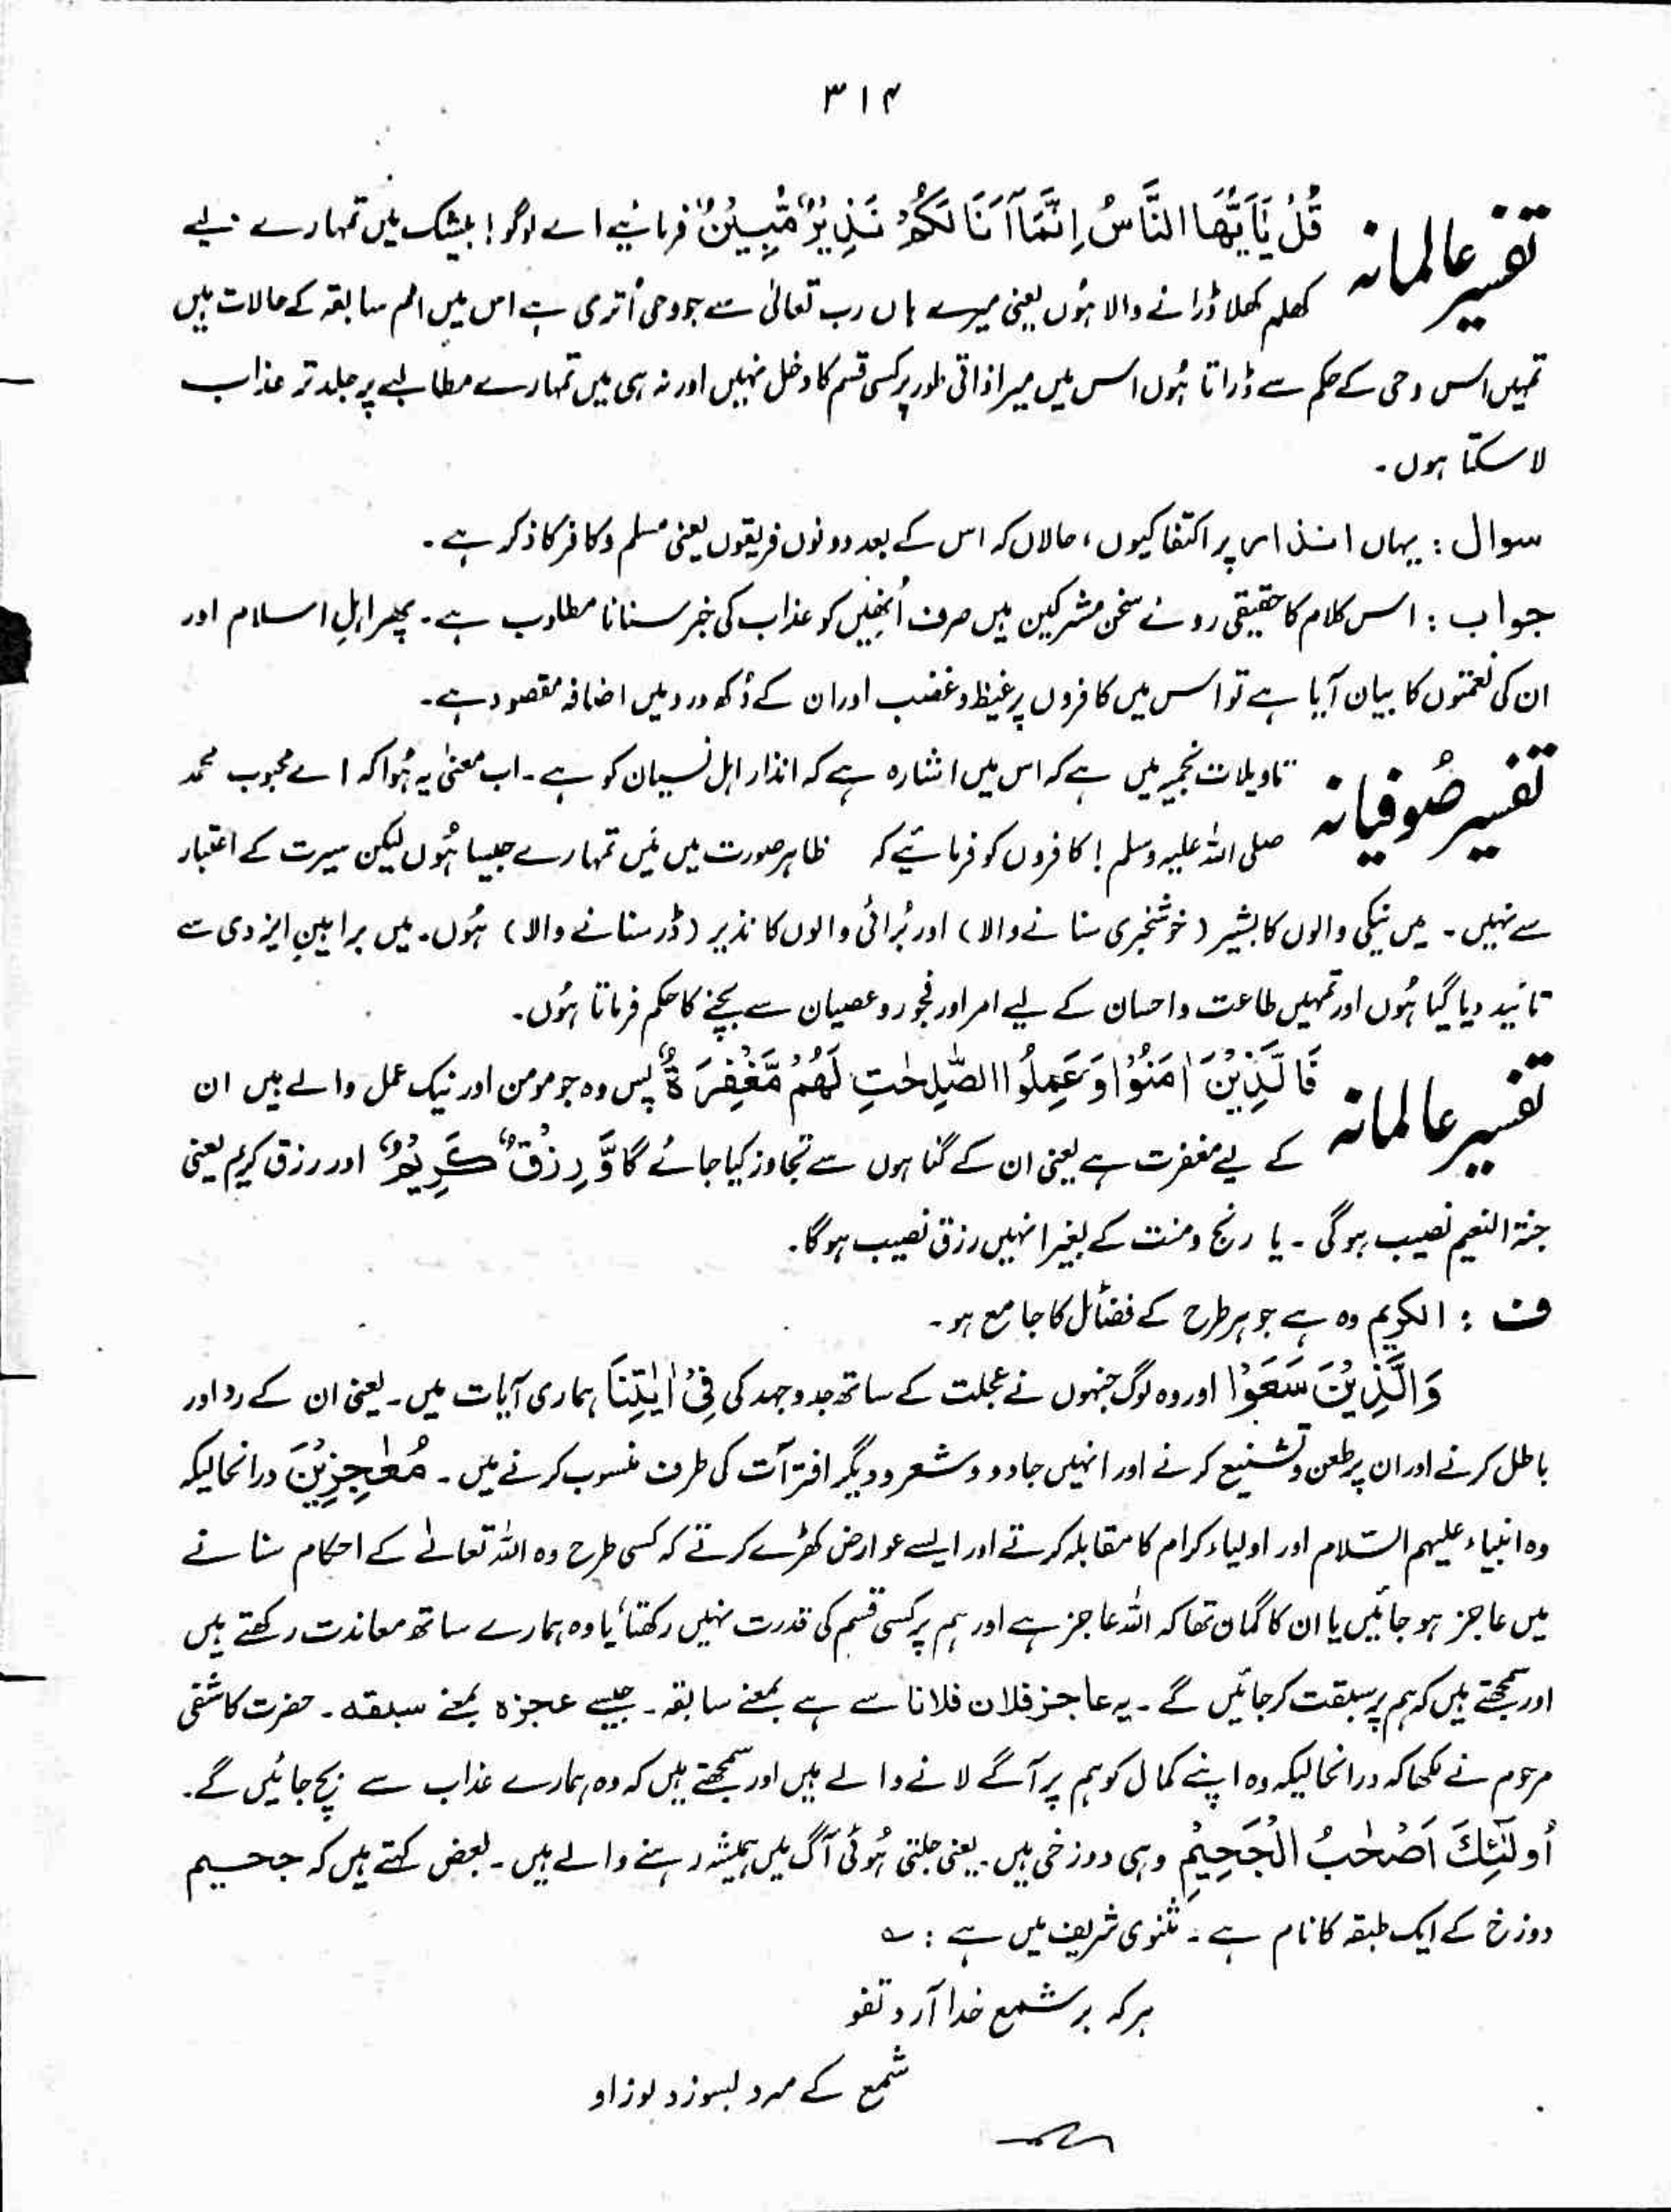 ۳۱۴
تفسیر عالمانہ قُلْ یٰۤاَیُّهَا النَّاسُ اِنَّمَاۤ اَنَا لَكُمْ نَذِیْرٌ مُّبِیْنٌ فرمائیے اے لوگو! بیشک میں تمہارے لیے
کھلم کھلا ڈرانے والا ہُوں یعنی میرے ہاں رب تعالیٰ سے جو وحی اُتری ہے اس میں امم سابقہ کے حالات ہیں
تمہیں اس وحی کے حکم سے ڈراتا ہُوں اس میں میرا ذاتی طور پر کسی قسم کا دخل نہیں اور نہ ہی میں تمہارے مطالبے پر جلد تر عذاب
لا سکتا ہوں۔
سوال : یہاں انذار پر اکتفا کیوں، حالاں کہ اس کے بعد دونوں فریقوں یعنی مسلم و کافر کا ذکر ہے۔
جواب : اس کلام کا حقیقی روئے سخن مشرکین ہیں صرف اُنھیں کو عذاب کی خبر سنانا مطلوب ہے۔ پھر اہلِ اسلام اور
ان کی نعمتوں کا بیان آیا ہے تو اس میں کافروں پر غیظ و غضب اور ان کے دُکھ درد میں اضافہ مقصود ہے۔
تفسیر صُوفیانہ تاویلات نجمیہ میں ہے کہ اس میں اشارہ ہے کہ انذار اہل نسیان کو ہے۔ اب معنیٰ یہ ہُوا کہ اے محبوب محمد
صلی اللہ علیہ وسلم! کافروں کو فرمائیے کہ ظاہر صورت میں مَیں تمہارے جیسا ہُوں لیکن سیرت کے اعتبار
سے نہیں۔ میں نیکی والوں کا بشیر (خوشخبری سنانے والا) اور بُرائی والوں کا نذیر (ڈر سنانے والا) ہُوں۔ میں براہینِ ایزدی سے
تائید دیا گیا ہُوں اور تمہیں طاعت و احسان کے لیے امر اور فجور و عصیان سے بچنے کا حکم فرماتا ہُوں۔
تفسیر عالمانہ فَالَّذِیْنَ اٰمَنُوْا وَعَمِلُوا الصّٰلِحٰتِ لَهُمْ مَّغْفِرَةٌ پس وہ جو مومن اور نیک عمل والے ہیں ان
کے لیے مغفرت ہے یعنی ان کے گناہوں سے تجاوز کیا جائے گا وَّ رِزْقٌ كَرِیْمٌ اور رزق کریم یعنی
جنۃ النعیم نصیب ہوگی۔ یا رنج و منت کے بغیر انہیں رزق نصیب ہوگا۔
ف : الکریم وہ ہے جو ہر طرح کے فضائل کا جامع ہو۔
وَالَّذِیْنَ سَعَوْا اور وہ لوگ جنہوں نے عجلت کے ساتھ جدوجہد کی فِیْۤ اٰیٰتِنَا ہماری آیات میں۔ یعنی ان کے رد اور
باطل کرنے اور ان پر طعن و تشنیع کرنے اور انہیں جادو و شعر و دیگر افترآت کی طرف منسوب کرنے میں۔ مُعٰجِزِیْنَ درانحالیکہ
وہ انبیاء علیہم السّلام اور اولیاء کرام کا مقابلہ کرتے اور ایسے عوارض کھڑے کرتے کہ کسی طرح وہ اللہ تعالےٰ کے احکام سنانے
میں عاجز ہو جائیں یا ان کا گمان تھا کہ اللہ عاجز ہے اور ہم پر کسی قسم کی قدرت نہیں رکھتا یا وہ ہمارے ساتھ معاندت رکھتے ہیں
اور سمجھتے ہیں کہ ہم پر سبقت کر جائیں گے۔ یہ عاجز فلان فلانا سے ہے بمعنے سابقہ۔ جیسے عجزہ بمعنے سبقہ۔ حضرت کاشفی
مرحوم نے لکھا کہ درانحالیکہ وہ اپنے کمال کو ہم پر آگے لانے والے ہیں اور سمجھتے ہیں کہ وہ ہمارے عذاب سے بچ جائیں گے۔
اُولٰٓئِكَ اَصْحٰبُ الْجَحِیْمِ وہی دوزخی ہیں۔ یعنی جلتی ہُوئی آگ میں ہمیشہ رہنے والے ہیں۔ بعض کہتے ہیں کہ جحیم
دوزخ کے ایک طبقہ کا نام ہے۔ مثنوی شریف میں ہے : ؎
ہر کہ بر شمع خدا آرد تفو
شمع کے میرد بسوزد پوز او